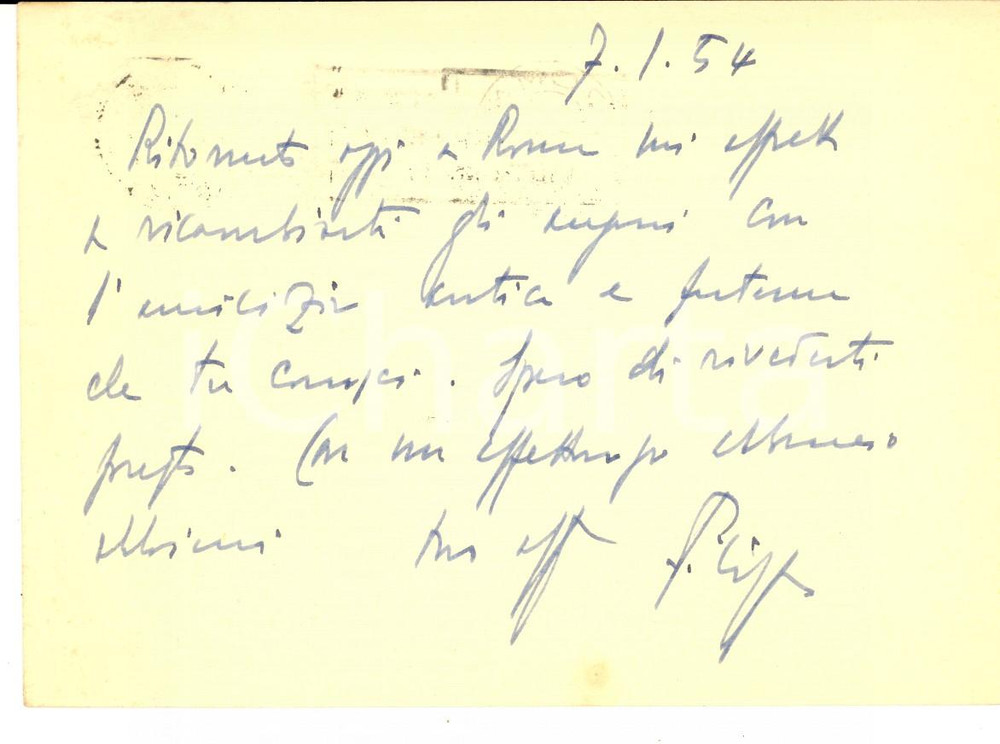 7.1.54
Ritornato oggi a Roma mi affretto
a ricambiarti gli auguri con
l'amicizia antica e fraterna
che tu conosci. Spero di rivederti
presto. Con un affettuoso abbraccio
abbimi tuo aff
iCharta